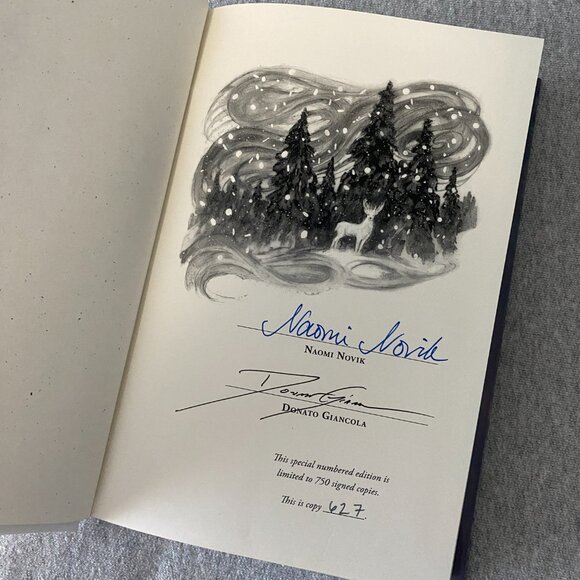 Naomi Novik
NAOMI NOVIK
Donato Giancola
DONATO GIANCOLA
This special numbered edition is
limited to 750 signed copies.
This is copy 627.